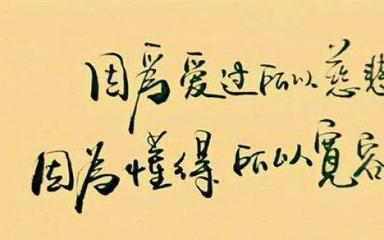 因爲爱过所以慈悲
因为懂得所以寬容